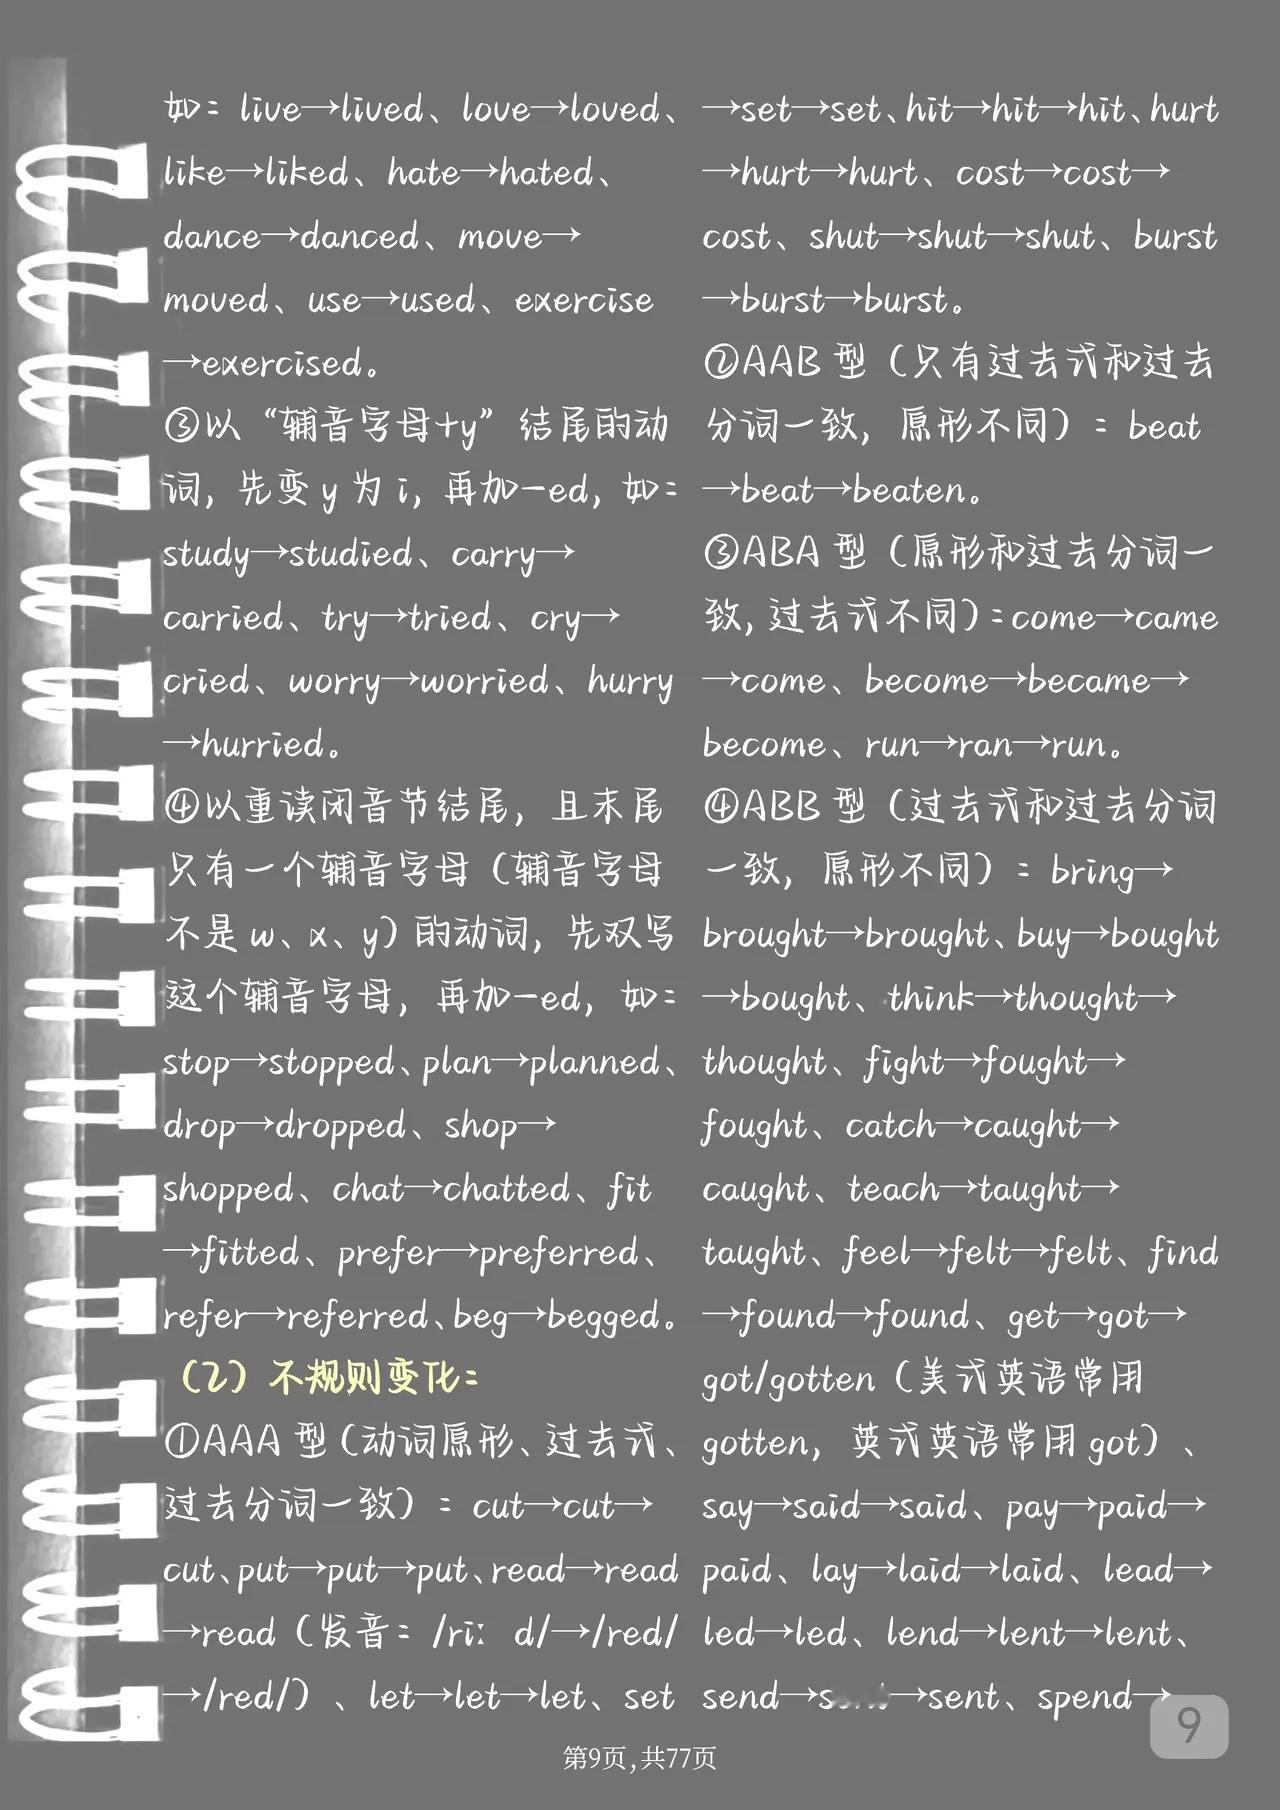 如：live→lived、love→loved、
like→liked、hate→hated、
dance→danced、move→
moved、use→used、exercise
→exercised。
③以“辅音字母+y”结尾的动
词，先变 y 为 i，再加-ed，如：
study→studied、carry→
carried、try→tried、cry→
cried、worry→worried、hurry
→hurried。
④以重读闭音节结尾，且末尾
只有一个辅音字母（辅音字母
不是 w、x、y）的动词，先双写
这个辅音字母，再加-ed，如：
stop→stopped、plan→planned、
drop→dropped、shop→
shopped、chat→chatted、fit
→fitted、prefer→preferred、
refer→referred、beg→begged。
（2）不规则变化：
①AAA 型（动词原形、过去式、
过去分词一致）：cut→cut→
cut、put→put→put、read→read
→read（发音：/riː d/→/red/
→/red/）、let→let→let、set
→set→set、hit→hit→hit、hurt
→hurt→hurt、cost→cost→
cost、shut→shut→shut、burst
→burst→burst。
②AAB 型（只有过去式和过去
分词一致，原形不同）：beat
→beat→beaten。
③ABA 型（原形和过去分词一
致，过去式不同）：come→came
→come、become→became→
become、run→ran→run。
④ABB 型（过去式和过去分词
一致，原形不同）：bring→
brought→brought、buy→bought
→bought、think→thought→
thought、fight→fought→
fought、catch→caught→
caught、teach→taught→
taught、feel→felt→felt、find
→found→found、get→got→
got/gotten（美式英语常用
gotten，英式英语常用 got）、
say→said→said、pay→paid→
paid、lay→laid→laid、lead→
led→led、lend→lent→lent、
send→→sent、spend→
9
第9页,共77页